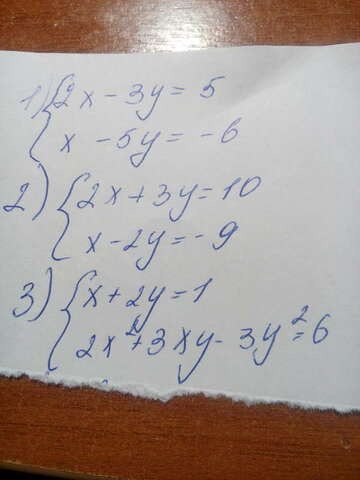 1) { 2x - 3y = 5
x - 5y = -6
2) { 2x + 3y = 10
x - 2y = -9
3) { x + 2y = 1
2x² + 3xy - 3y² = 6